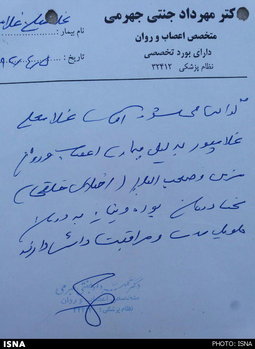 دکتر مهرداد جنتی جهرمی
متخصص اعصاب و روان
دارای بورد تخصصی
نظام پزشکی ۳۲۴۱۲
نام بیمار:
تاریخ:
گواهی می‌شود آقای غلامعلی
غلامپور به دلیل بیماری اعصاب و روان
مزمن و صعب العلاج (اختلال خلقی)
تحت درمان بوده و نیاز به درمان
طولانی مدت و مراقبت داشته دارند
متخصص اعصاب و روان
ISNA
PHOTO: ISNA